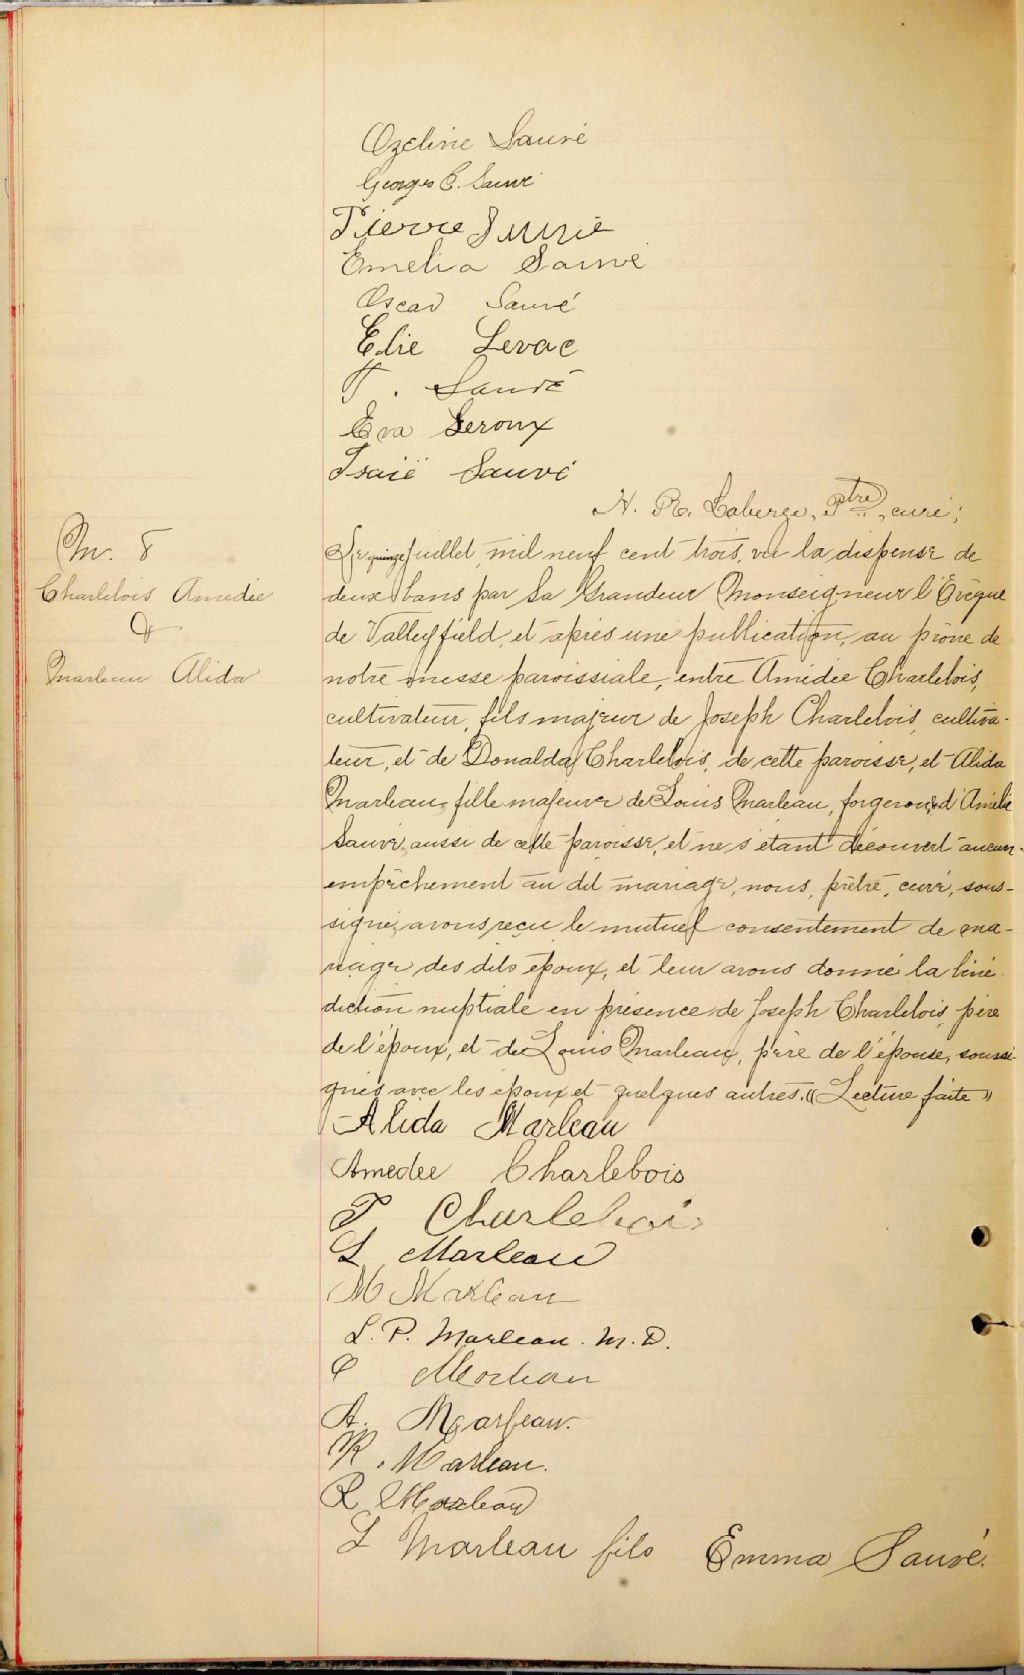 Ozeline Sauvé
Georges C. Sauvé
Pierre Sauvé
Emelia Sauvé
Oscar Sauvé
Elie Levac
T. Sauvé
Eva Leroux
Isaïe Sauvé
H. R. Laberge, Ptre, curé;
M. 8
Charlebois Amédée
&
Marleau Alida
Le quinze juillet, mil neuf cent trois, vu la dispense de
deux bans par Sa Grandeur Monseigneur l'Evêque
de Valleyfield, et après une publication, au prône de
notre messe paroissiale, entre Amédée Charlebois,
cultivateur, fils majeur de Joseph Charlebois, cultiva-
teur, et de Donalda Charlebois, de cette paroisse, et Alida
Marleau, fille majeure de Louis Marleau, forgeron, & d'Amélie
Sauvé, aussi de cette paroisse, et ne s'étant découvert aucun
empêchement au dit mariage, nous, prêtre, curé, sous-
signé, avons reçu le mutuel consentement de ma-
riage des dits époux, et leur avons donné la béné-
diction nuptiale en présence de Joseph Charlebois, père
de l'époux, et de Louis Marleau, père de l'épouse, soussi-
gnés avec les époux et quelques autres. "Lecture faite"
Alida Marleau
Amedee Charlebois
J. Charlebois
L. Marleau
M Marleau
L. P. Marleau. M. D.
Marleau
A. Marleau.
R. Marleau.
R Marleau
L Marleau fils Emma Sauvé.